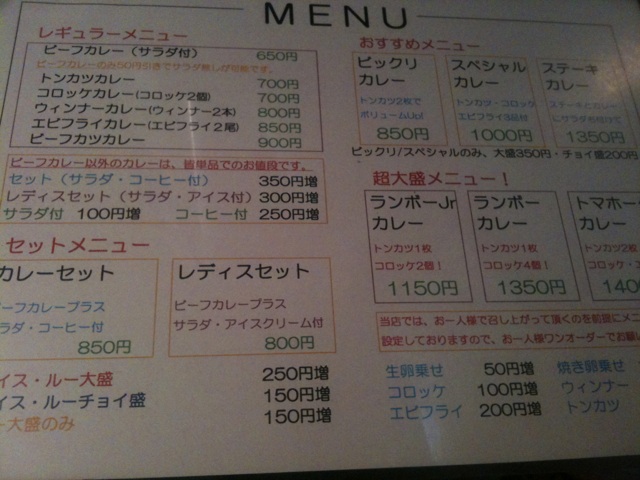 MENU
レギュラーメニュー
ビーフカレー（サラダ付） 650円
ビーフカレーのみ50円引きでサラダ無しが可能です。
トンカツカレー 700円
コロッケカレー（コロッケ2個） 700円
ウィンナーカレー（ウィンナー2本） 800円
エビフライカレー（エビフライ2尾） 850円
ビーフカツカレー 900円
ビーフカレー以外のカレーは、皆単品でのお値段です。
セット（サラダ・コーヒー付） 350円増
レディスセット（サラダ・アイス付） 300円増
サラダ付 100円増 コーヒー付 250円増
セットメニュー
カレーセット
ビーフカレープラス
サラダ・コーヒー付
850円
レディスセット
ビーフカレープラス
サラダ・アイスクリーム付
800円
イス・ルー大盛 250円増
イス・ルーチョイ盛 150円増
ー大盛のみ 150円増
おすすめメニュー
ビックリ
カレー
トンカツ2枚で
ボリュームUp!
850円
スペシャル
カレー
トンカツ・コロッケ
エビフライ3品付
1000円
ステーキ
カレー
1350円
ビックリ/スペシャルのみ、大盛350円・チョイ盛200円
超大盛メニュー！
ランボーJr
カレー
トンカツ1枚
コロッケ2個！
1150円
ランボー
カレー
トンカツ1枚
コロッケ4個！
1350円
トマホー
カレー
トンカツ2枚
コロッケ・
140
当店では、お一人様で召し上がって頂くのを前提にメニ
設定しておりますので、お一人様ワンオーダーでお願い
生卵乗せ 50円増 焼き卵乗せ
コロッケ 100円増 ウィンナー
エビフライ 200円増 トンカツ